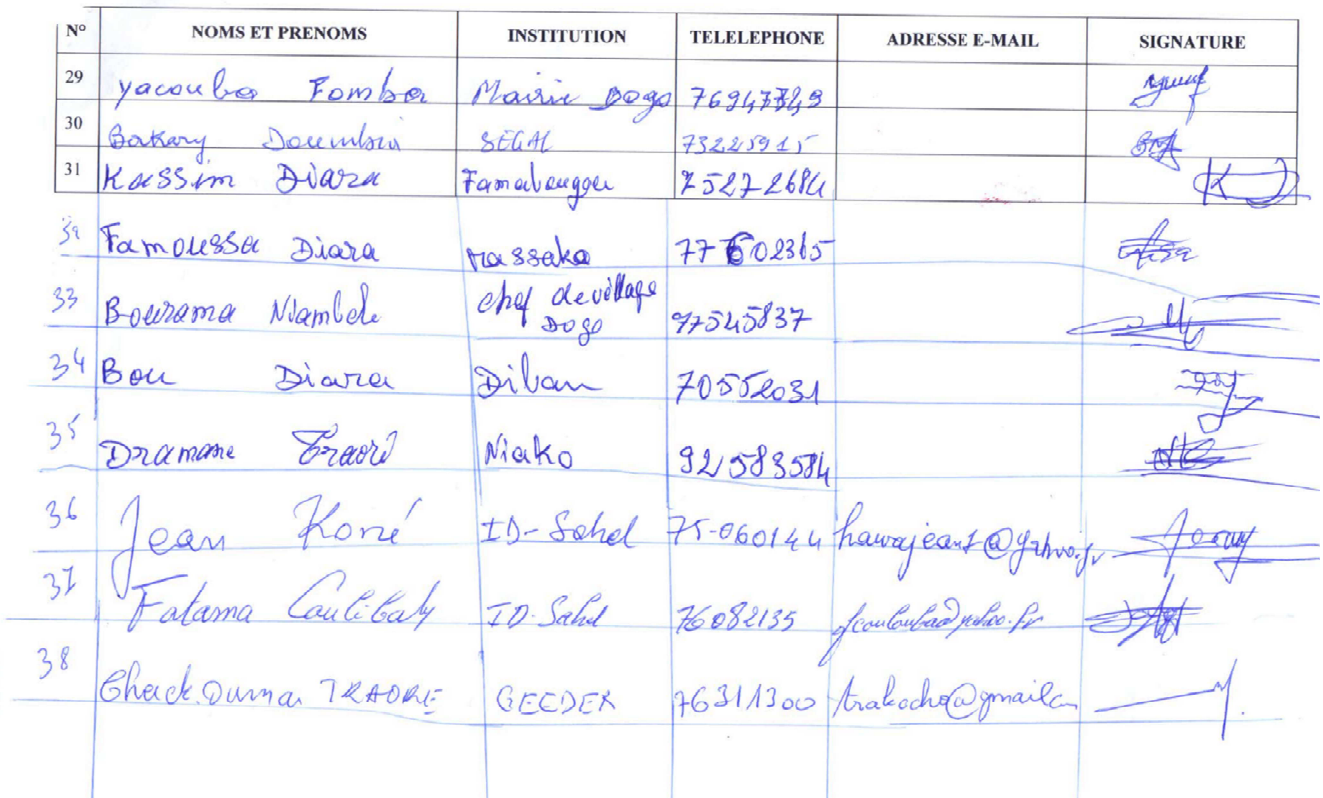 N° NOMS ET PRENOMS INSTITUTION TELELEPHONE ADRESSE E-MAIL SIGNATURE
29 yacouba Fomba Mairie Dogo
30 Bakary Doumbia SEGAL 73225915
31 Kassim Diara 75272684
32 Famoussa Diara 77602365
33 Bourama Niambele chef de village
Dogo 97545837
34 Bou Diara Diban 70552031
35 Dramane Traoré Niako 92583584
36 Jean Koné ID-Sahel 75-060144
37 Fatama Coulibaly ID-Sahel 76082135
38 Check Oumar TRAORE GEEDER 76311300